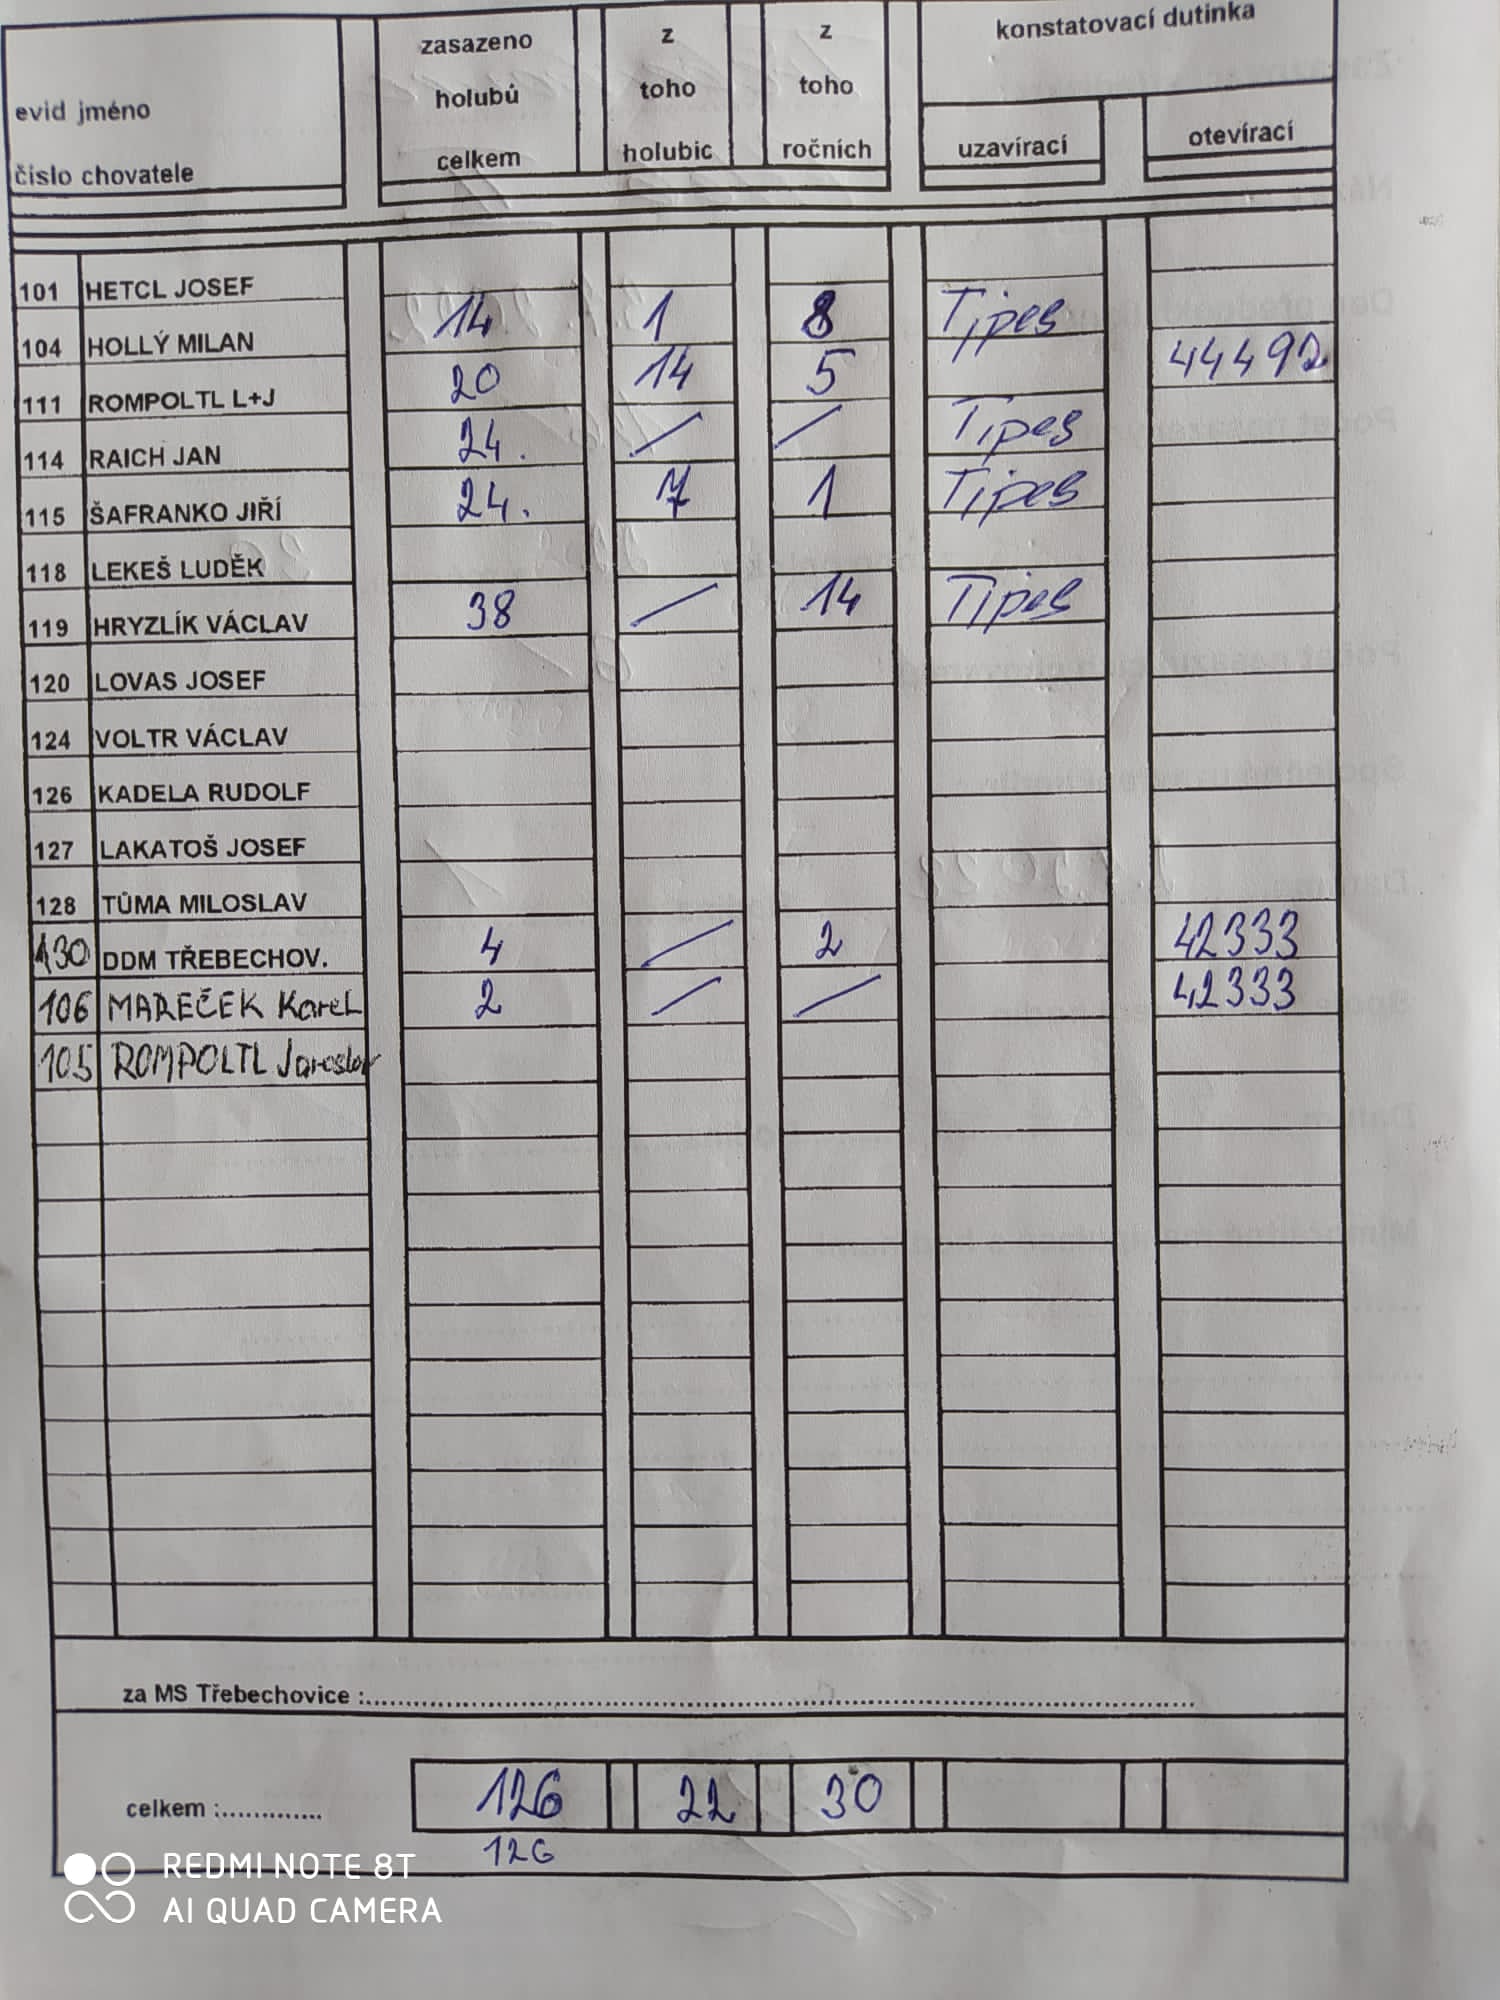 evid jméno
číslo chovatele
zasazeno holubů celkem
z toho holubic
z toho ročních
konstatovací dutinka
uzavírací
otevírací
101 HETCL JOSEF
104 HOLLÝ MILAN 14 1 8 Tipes
111 ROMPOLTL L+J 20 14 5 44492
114 RAICH JAN 24. / / Tipes
115 ŠAFRANKO JIŘÍ 24. 7 1 Tipes
118 LEKEŠ LUDĚK
119 HRYZLÍK VÁCLAV 38 / 14 Tipes
120 LOVAS JOSEF
124 VOLTR VÁCLAV
126 KADELA RUDOLF
127 LAKATOŠ JOSEF
128 TŮMA MILOSLAV
130 DDM TŘEBECHOV. 4 / 2 42333
106 MAREČEK Karel 2 / / 42333
105 ROMPOLTL Jaroslav
za MS Třebechovice :..........
celkem :............. 126 22 30
126
REDMI NOTE 8T
AI QUAD CAMERA